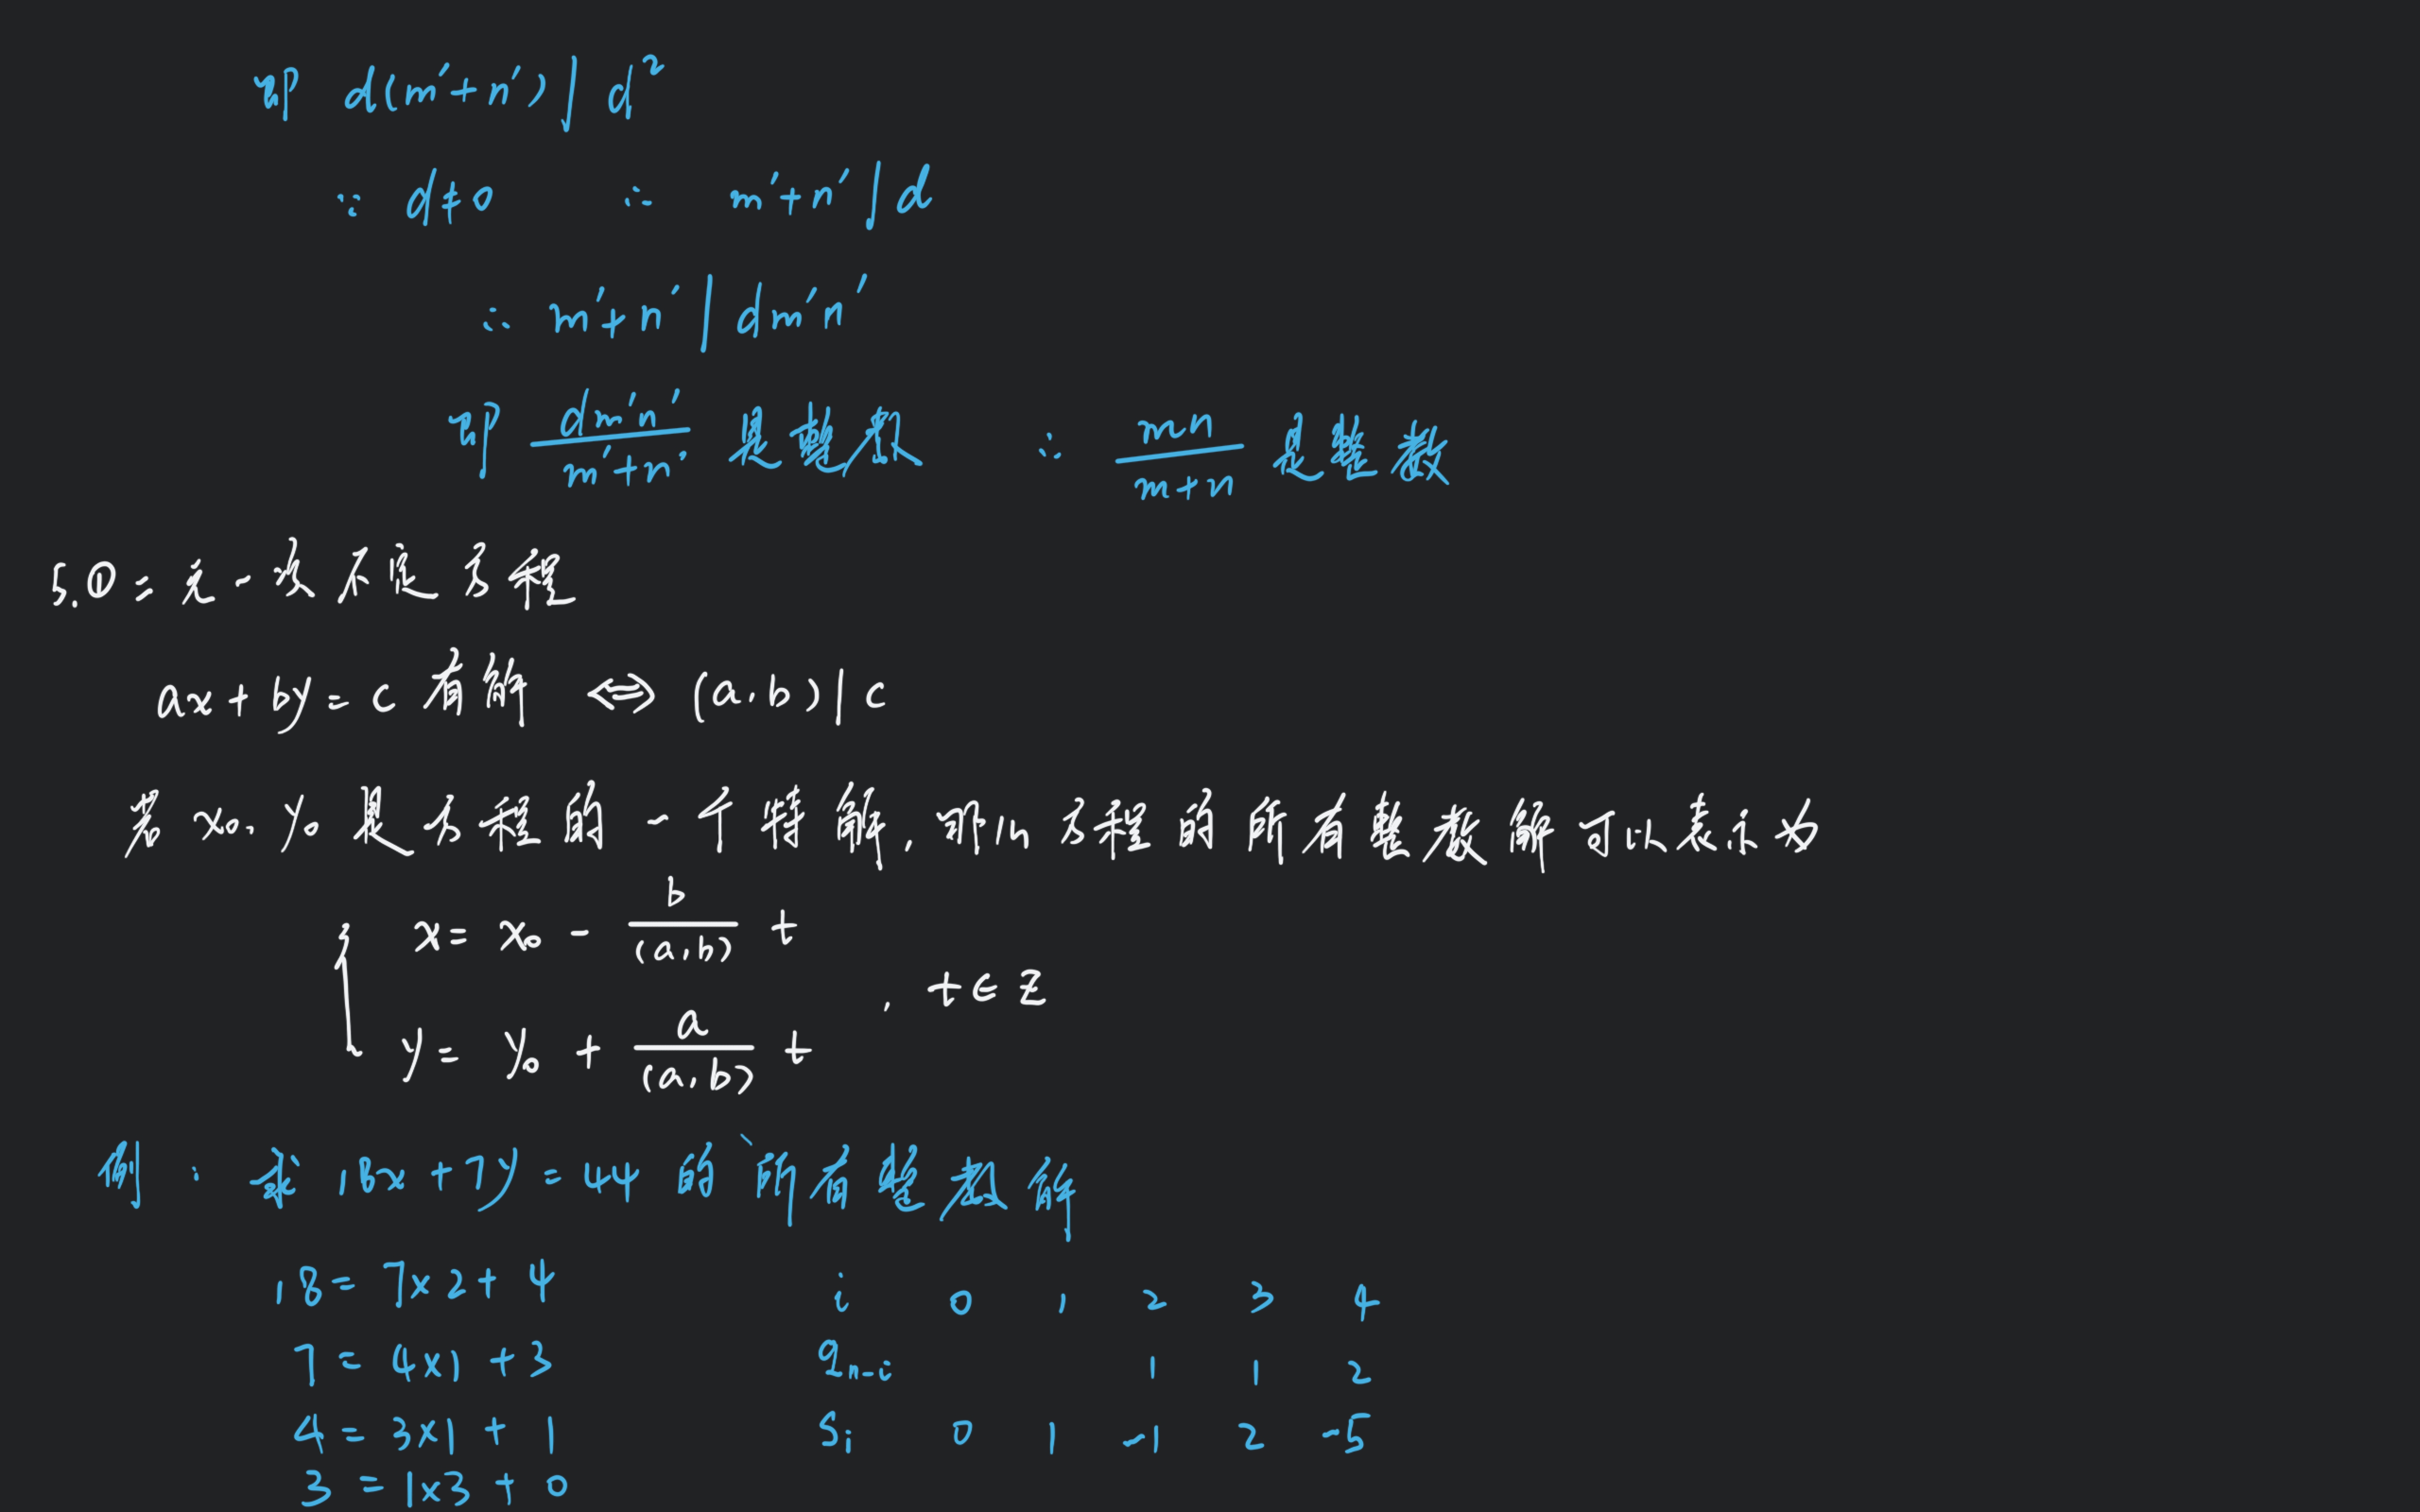 即 d(m'+n') | d²
∵ d≠0 ∴ m'+n' | d
∴ m'+n' | dm'n'
即 dm'n'/(m'+n') 是整数 ∴ mn/(m+n) 是整数
5.① 二元一次不定方程
ax+by=c 有解 ⟺ (a,b)|c
若 x₀, y₀ 是方程的一个特解, 那么方程的所有整数解可以表示为
{ x = x₀ - b/(a,b) t
y = y₀ + a/(a,b) t , t∈Z
例: 求 18x+7y=44 的所有整数解
18=7×2+4 i 0 1 2 3 4
7=4×1+3 qₙ₋ᵢ 1 1 2
4=3×1+1 Sᵢ 0 1 -1 2 -5
3=1×3+0